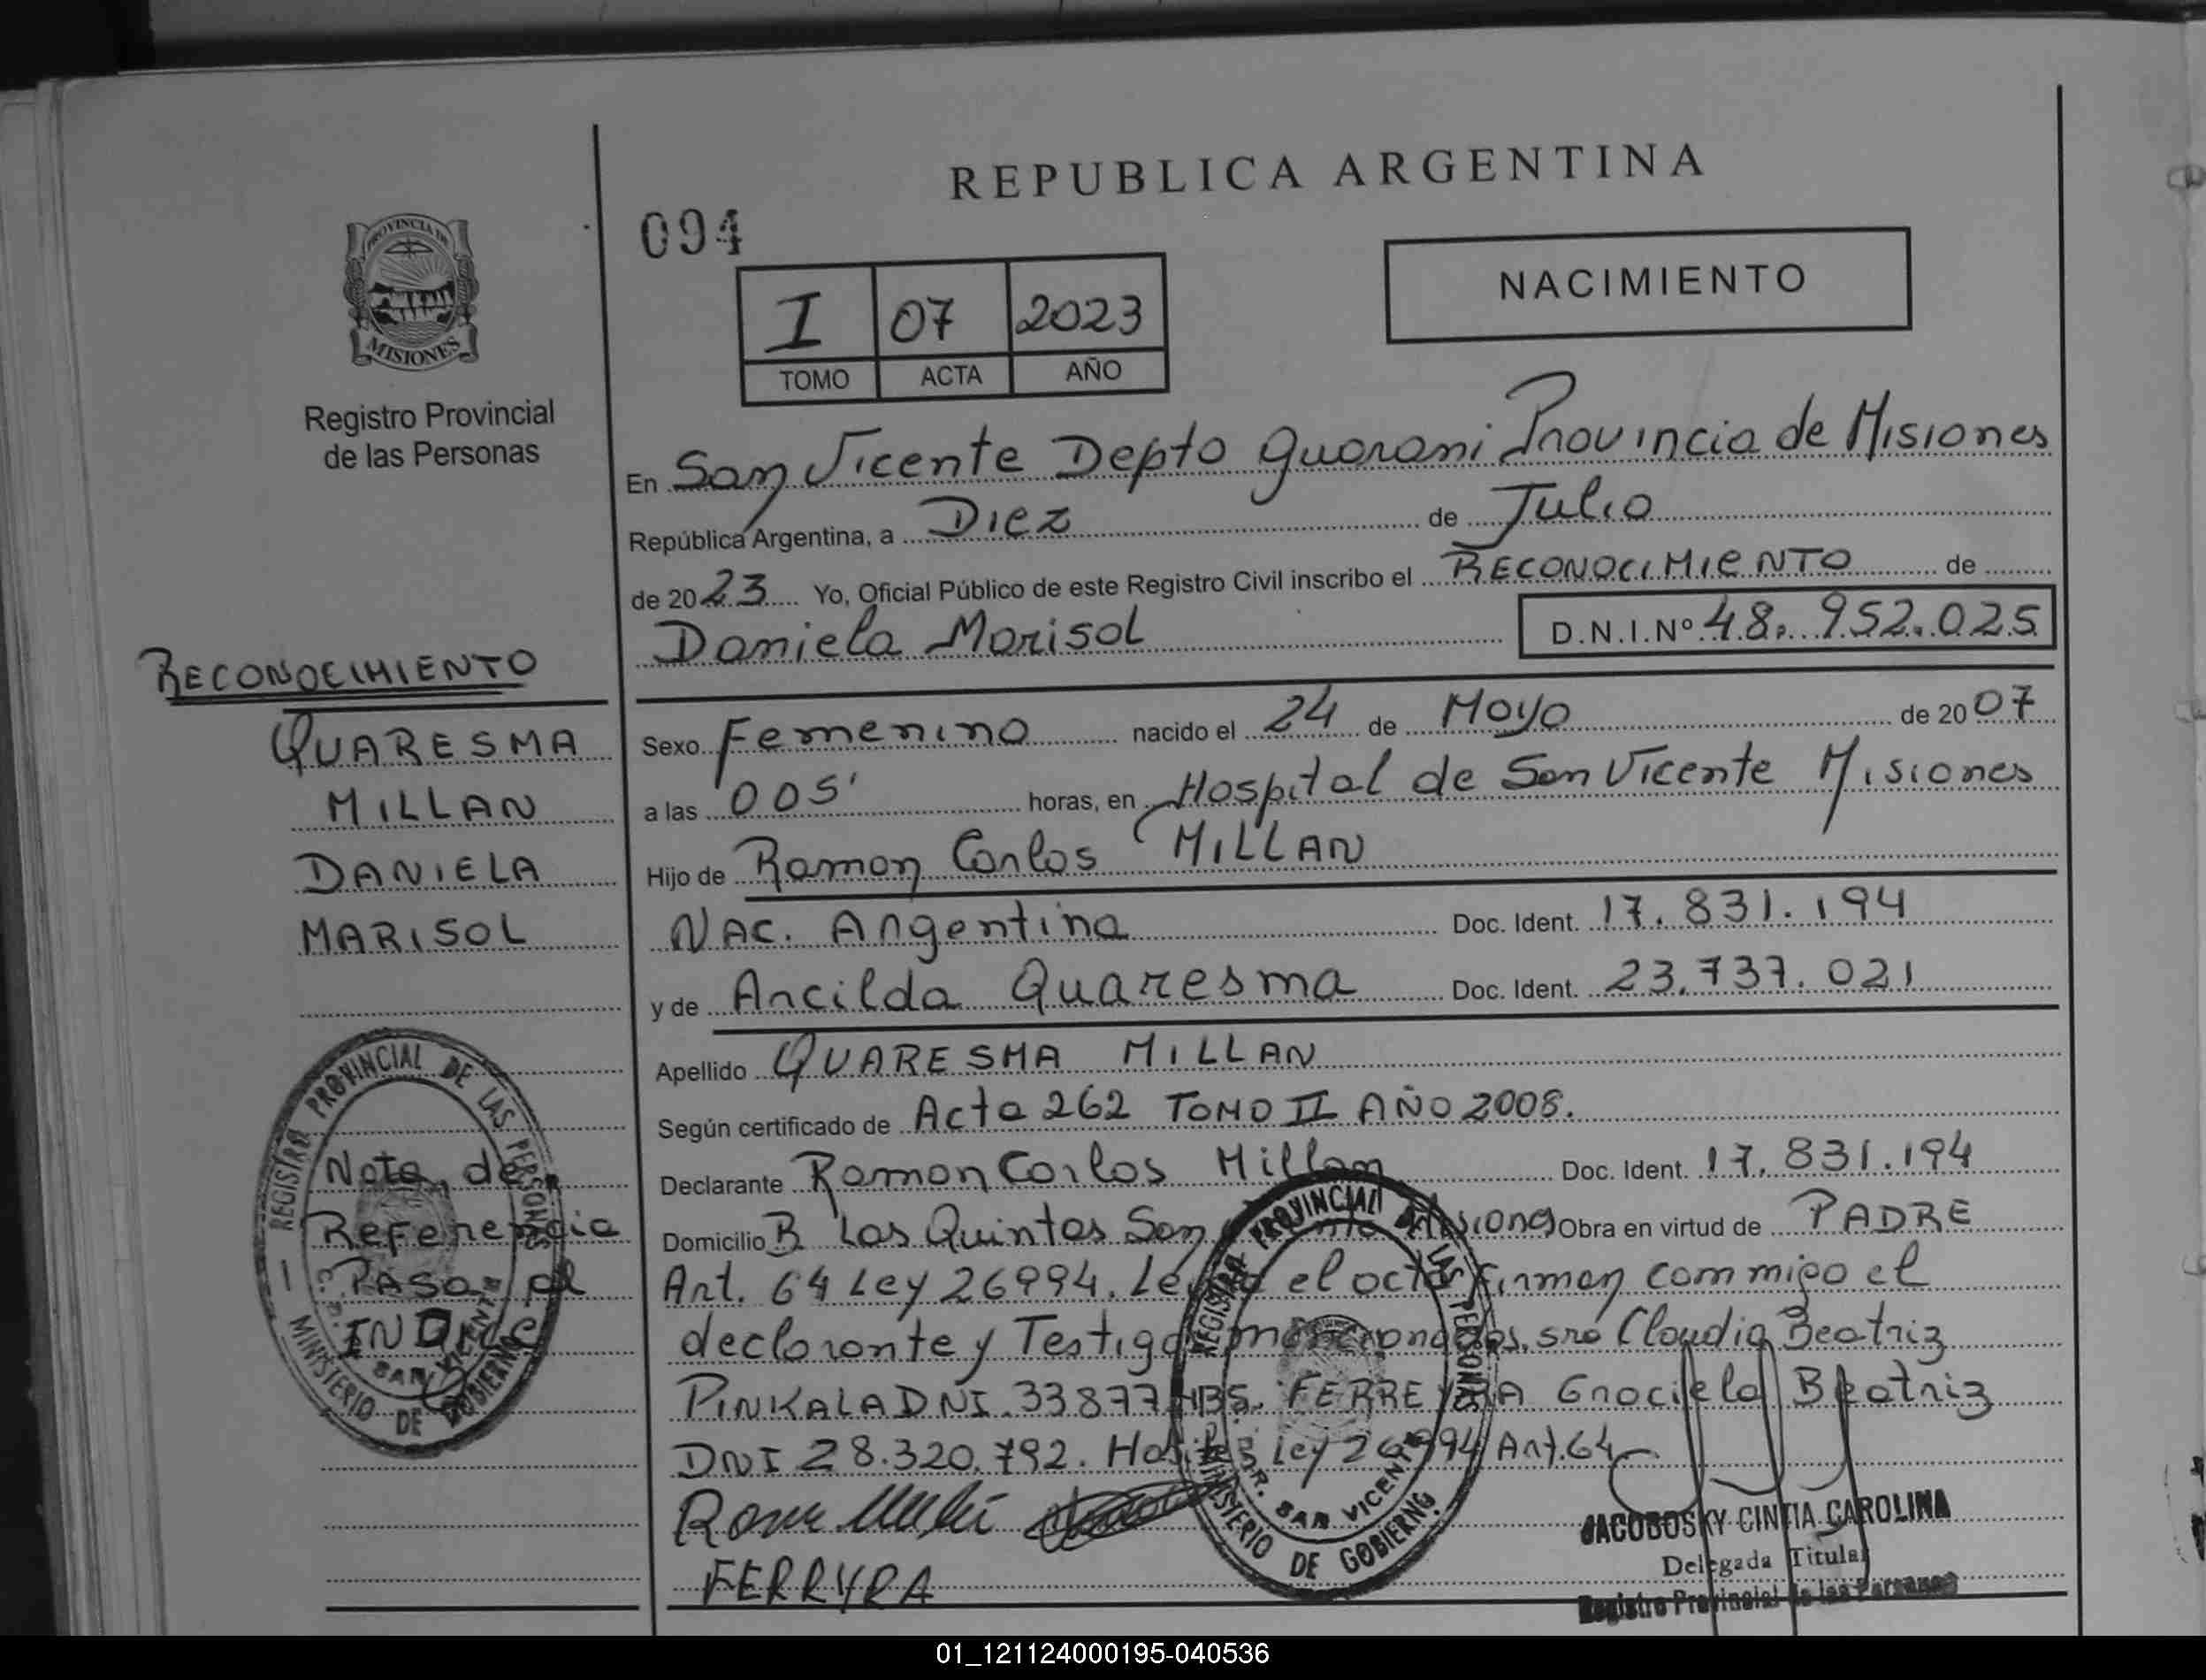 REPUBLICA ARGENTINA
094
I 07 2023
TOMO ACTA AÑO
NACIMIENTO
PROVINCIA DE
MISIONES
Registro Provincial
de las Personas
En San Vicente Depto Guarani Provincia de Misiones
República Argentina, a Diez de Julio
de 2023 Yo, Oficial Público de este Registro Civil inscribo el RECONOCIMIENTO de
Daniela Marisol D.N.I.Nº 48. 952.025
RECONOCIMIENTO
QUARESMA
MILLAN
DANIELA
MARISOL
Sexo Femenino nacido el 24 de Mayo de 2007
a las 005' horas, en Hospital de San Vicente Misiones
Hijo de Ramon Carlos MILLAN
NAC. Argentina Doc. Ident. 17.831.194
y de Ancilda Quaresma Doc. Ident. 23.737.021
Apellido QUARESMA MILLAN
Según certificado de Acta 262 TOMO II AÑO 2008.
Declarante Ramon Carlos Millan Doc. Ident. 17.831.194
Domicilio B Las Quintas San Misiones Obra en virtud de PADRE
Art. 64 Ley 26994. el acta firman commigo el
declarante y Testigos mencionados, sra Claudia Beatriz
PINKALA DNI. 33877 FERREYRA Graciela Beatriz
DNI 28.320.792. Ley 26994 Art.64
FERRYRA
Nota de
Referencia
PASA al
REGISTRO PROVINCIAL DE LAS PERSONAS
MINISTERIO DE GOBIERNO
SAN VICENTE
REGISTRO PROVINCIAL DE LAS PERSONAS
MINISTERIO DE GOBIERNO
SAN VICENTE
JACOBOSKY CINTIA CAROLINA
Delegada Titular
Registro Provincial de las Personas
01_121124000195-040536